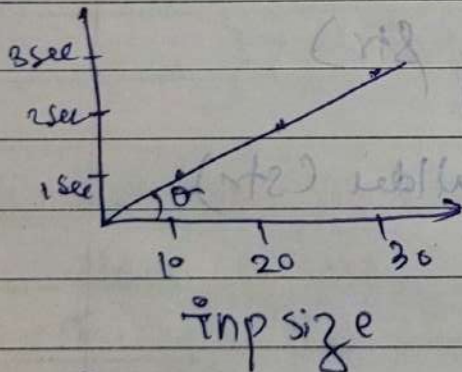 3 sec
2 sec
1 sec
θ
10 20 30
inp size